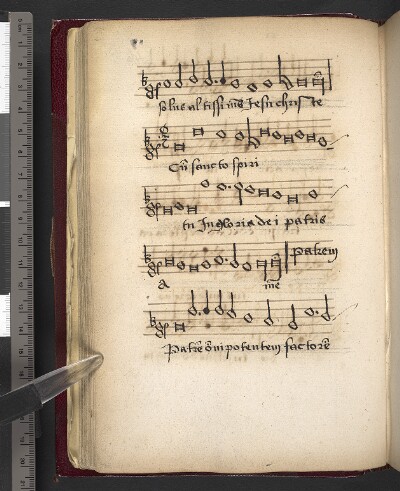 solus altissimus Jesu christe
Cū sancto spiri
tu In gloria dei patris
Patrem
A mē
Patrē oīpotentem factorē